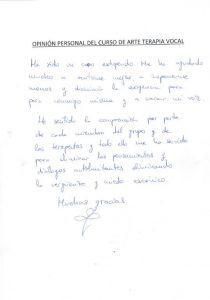 OPINIÓN PERSONAL DEL CURSO DE ARTE TERAPIA VOCAL
Ha sido un curso estupendo. Me ha ayudado
mucho a sentirme mejor, a imponerme
menos y disminuir la exigencia para
para conmigo misma y a sacar mi voz.
He sentido la comprensión por parte
de cada miembro del grupo y de
los terapeutas y todo ello me ha servido
para disminuir los pensamientos y
diálogos autolimitantes eliminando
la vergüenza y miedo escénico.
Muchas gracias.